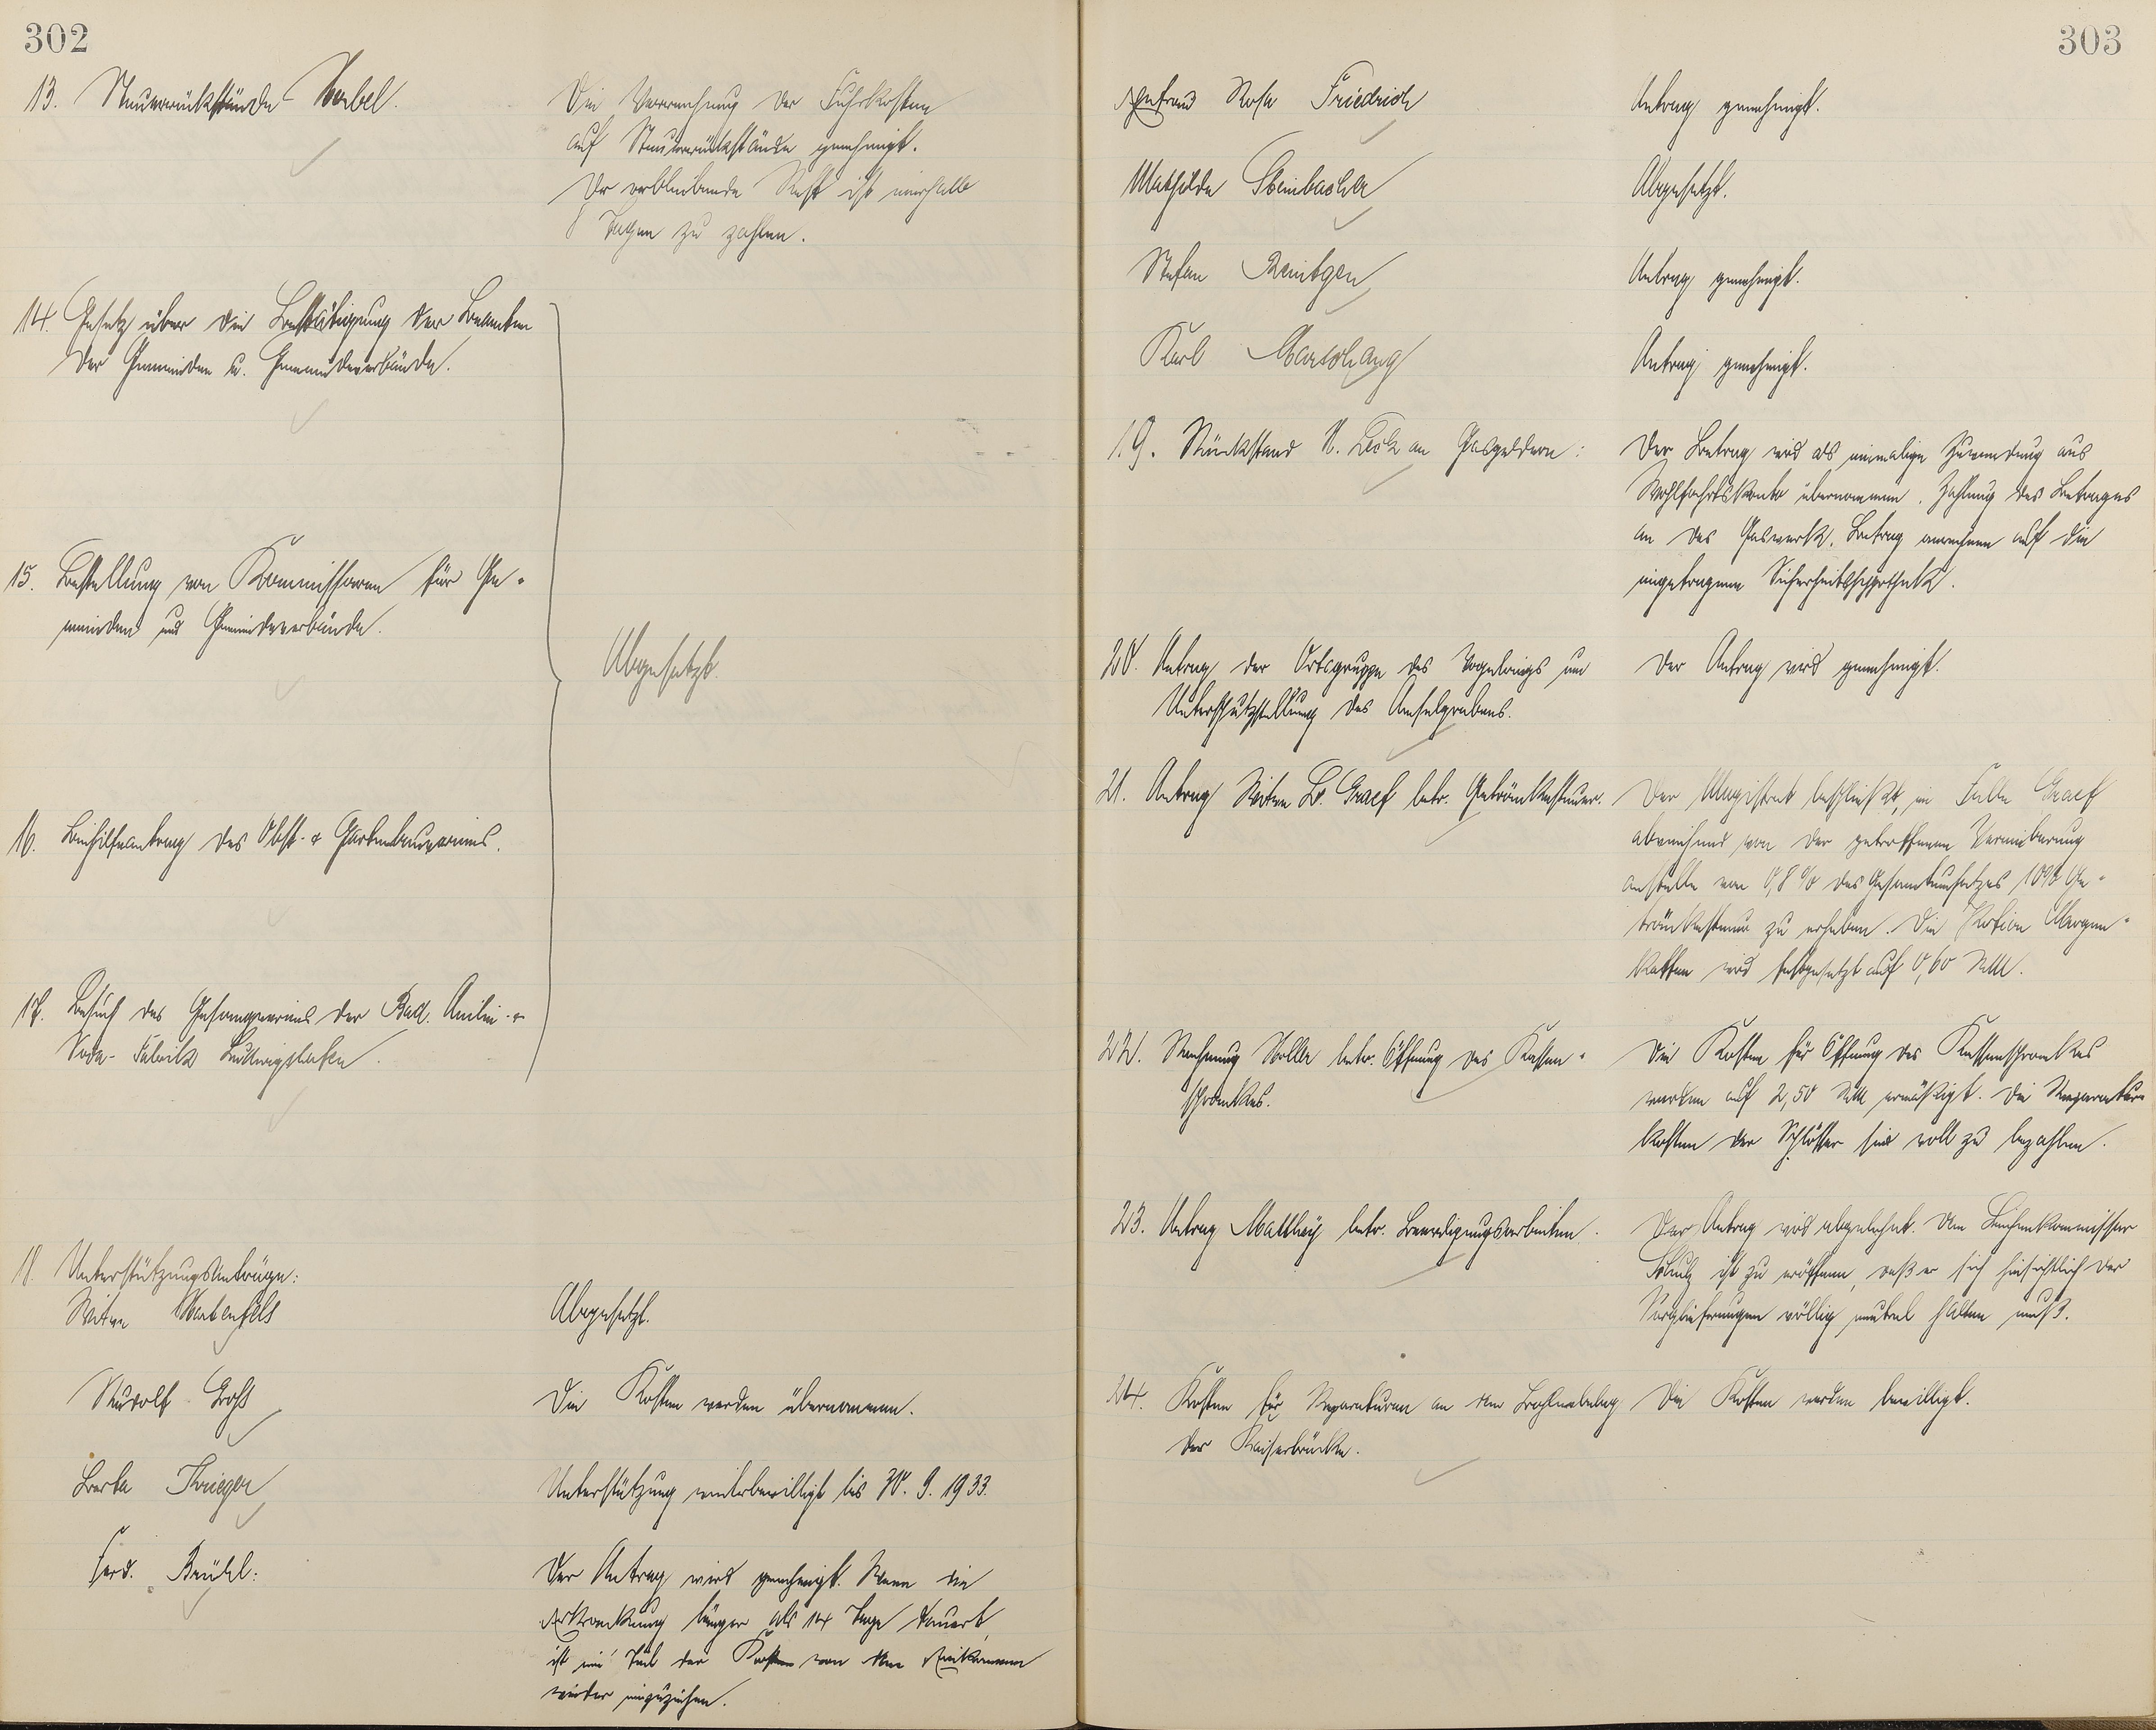 302
13. Steuerrückstände Korbel.
Die Verrechnung der Fuhrkosten
auf Steuerrückstände genehmigt.
Der verbleibende Rest ist innerhalb
8 Tagen zu zahlen.
14. Gesetz über die Bestätigung der Beamten
der Gemeinden u. Gemeindeverbände.
15. Bestellung von Kommissaren für Ge-
meinden und Gemeindeverbände.
Abgesetzt.
16. Beihilfeantrag des Obst- & Gartenbauvereins.
17. Besuch des Gesangvereins der Bad. Anilin- &
Soda-Fabrik Ludwigshafen.
18. Unterstützungsanträge:
Witwe
Abgesetzt.
Rudolf Groß
Die Kosten werden übernommen.
Berta Krieger
Unterstützung weiterbewilligt bis 30. 9. 1933.
Ferd. Brühl:
Der Antrag wird genehmigt. Wenn die
Erkrankung länger als 14 Tage dauert,
ist ein Teil der Kosten von dem Einkommen
wieder einzuziehen.
303
Ehefrau Rosa Friedrich
Antrag genehmigt.
Mathilde Steinbacher
Abgesetzt.
Stefan Reintgen
Antrag genehmigt.
Karl Marschang
Antrag genehmigt.
19. Rückstand N. Zech an Gasgeldern:
Der Betrag wird als einmalige Zuwendung aus
Wohlfahrtskonto übernommen. Zahlung des Betrages
an das Gaswerk. Betrag anrechnen auf die
eingetragene Sicherheitshypothek.
20. Antrag der Ortsgruppe des Vogelrings um
Unterschutzstellung des Amselgrabens.
Der Antrag wird genehmigt.
21. Antrag Witwe Br. Graef betr. Getränkesteuer.
Der Magistrat beschließt, im Falle Graef
abweichend von der getroffenen Vereinbarung
anstelle von 0,8 % des Gesamtumsatzes 10% Ge-
tränkesteuer zu erheben. Die Portion Morgen-
kaffee wird festgesetzt auf 0,60 RM.
22. Rechnung Stoller betr. Öffnung des Kassen-
schrankes.
Die Kosten für Öffnung des Kassenschrankes
werden auf 2,50 RM ermäßigt. Die Reparatur-
kosten der Schlösser sind voll zu bezahlen.
23. Antrag Matthey betr. Beerdigungsarbeiten.
Der Antrag wird abgelehnt. Dem Leichenkommissar
Schulz ist zu eröffnen, daß er sich hinsichtlich der
Sarglieferungen völlig neutral halten muß.
24. Kosten für Reparaturen an dem Bohlenbelag
der Kaiserbrücke.
Die Kosten werden bewilligt.